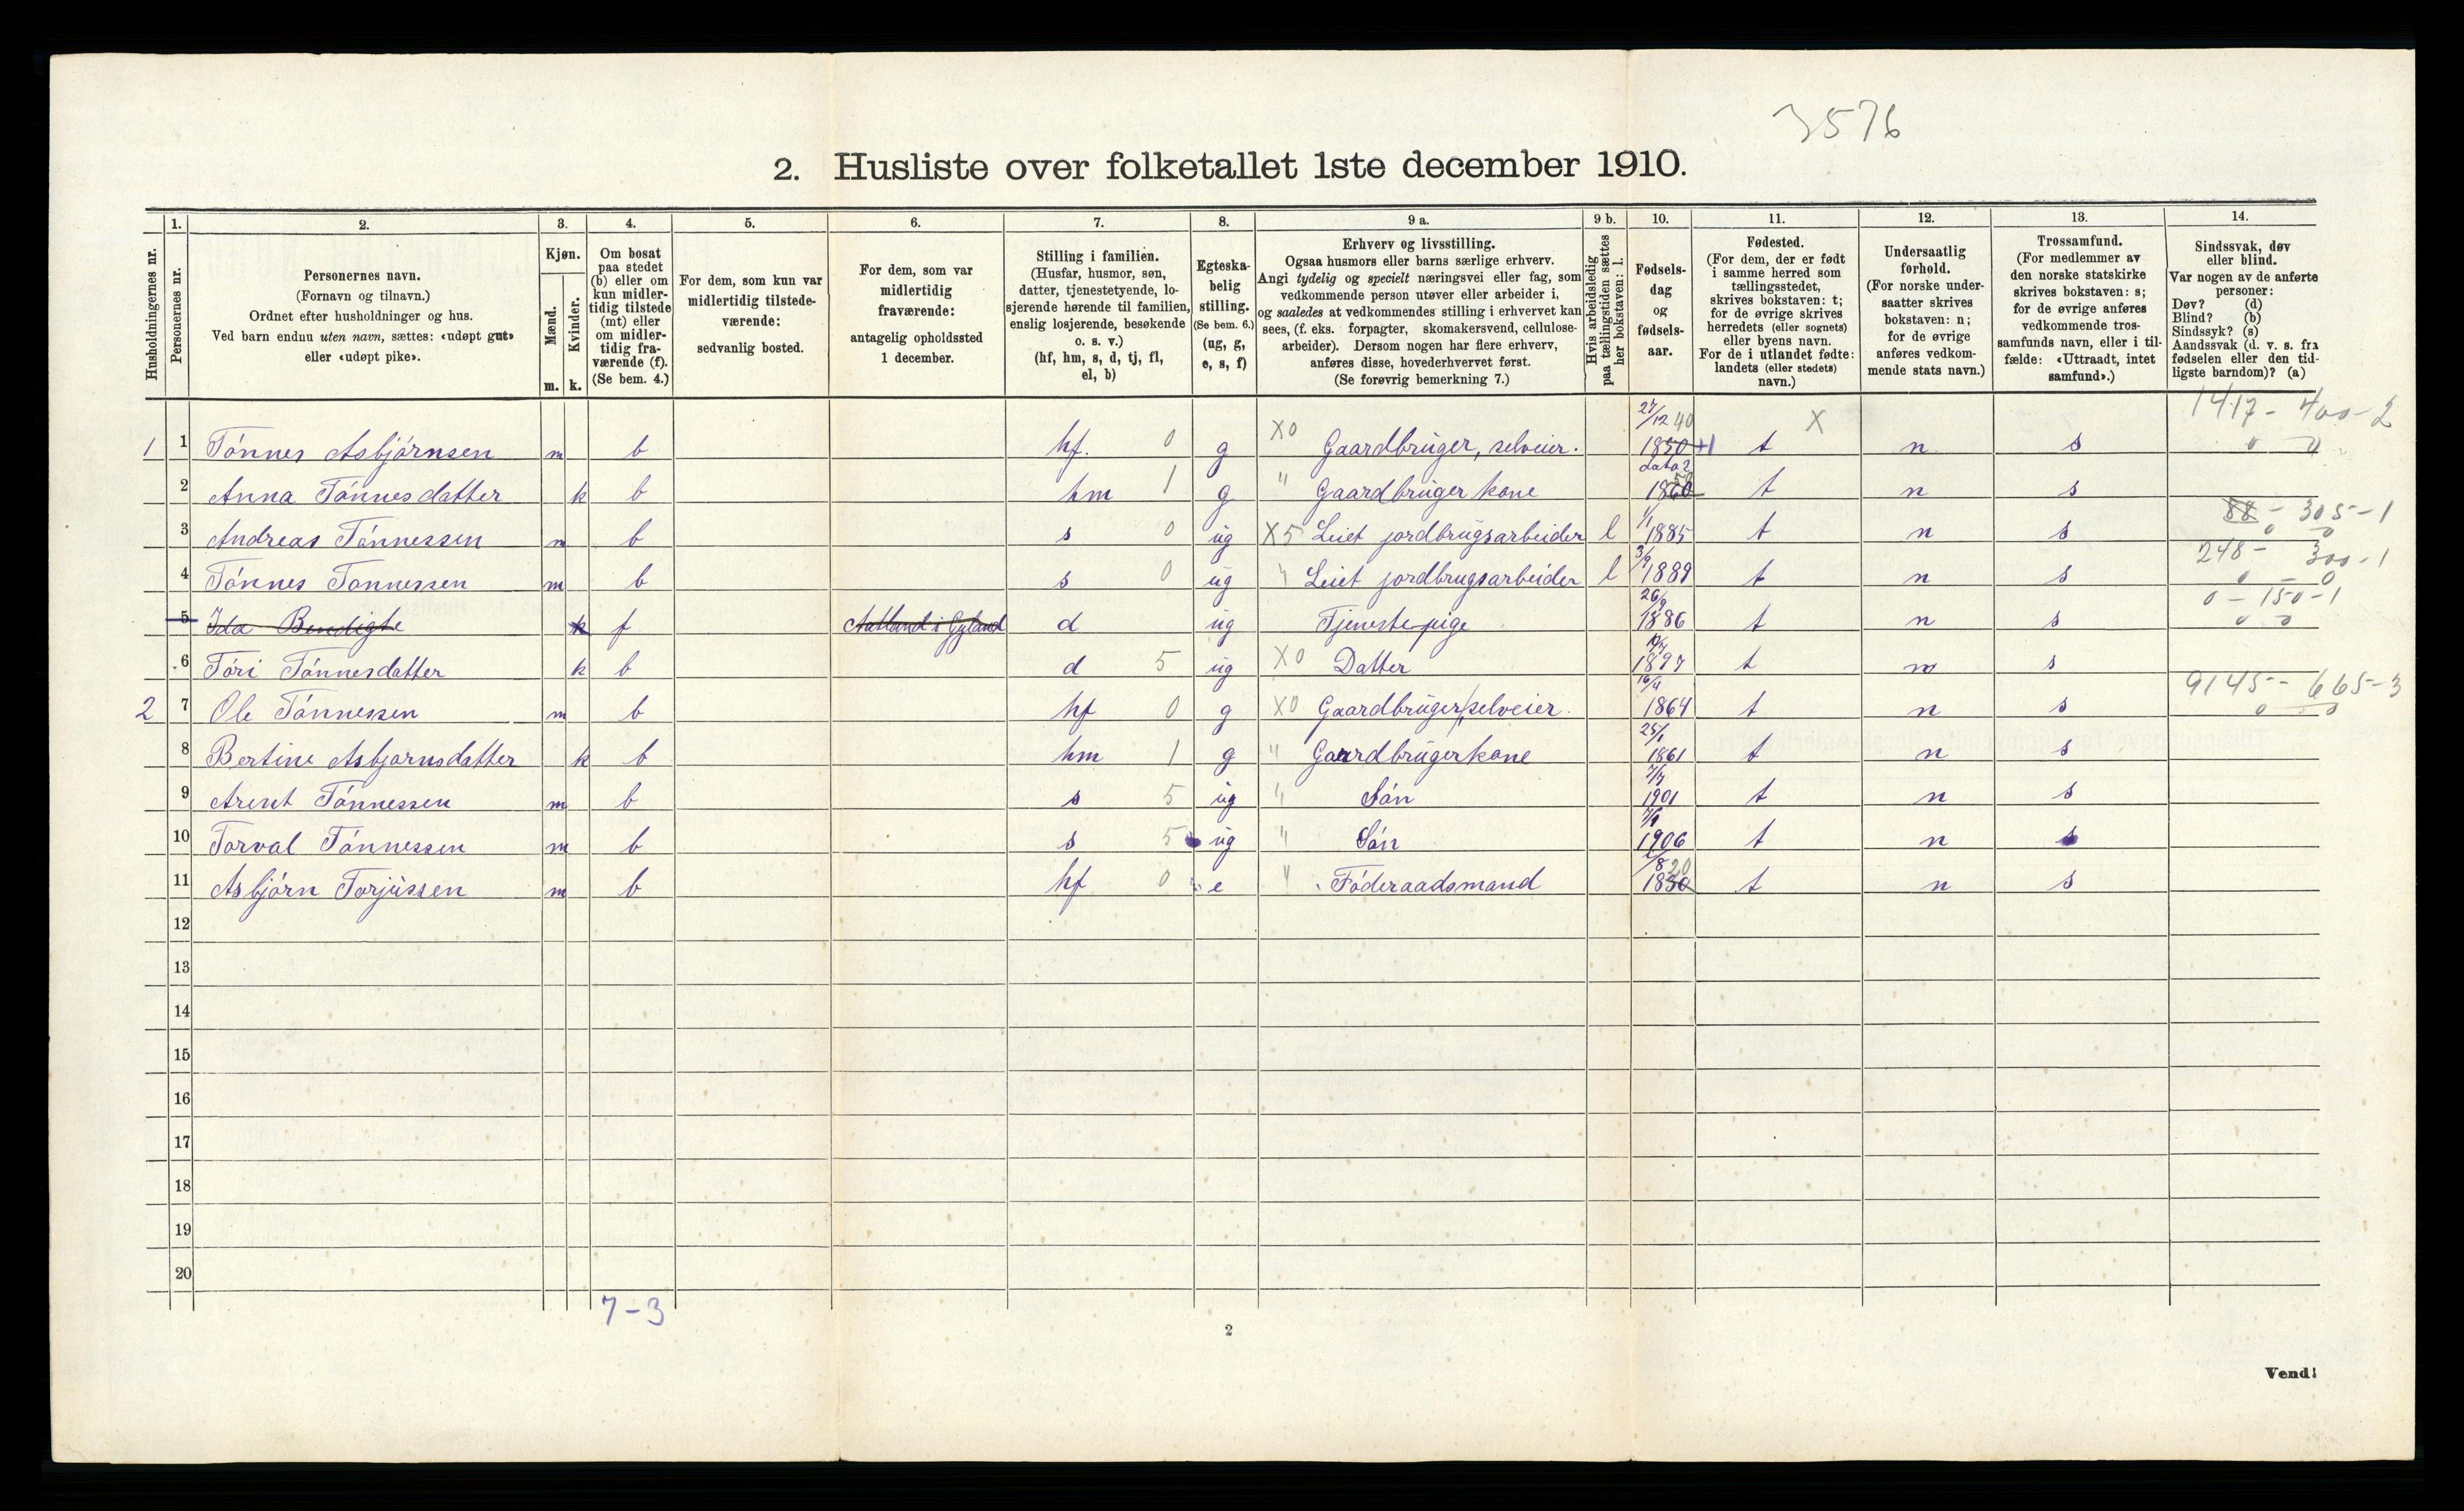 3576
2. Husliste over folketallet 1ste december 1910.
Husholdningernes nr.
1. Personernes nr.
2. Personernes navn.
(Fornavn og tilnavn.)
Ordnet efter husholdninger og hus.
Ved barn endnu uten navn, sættes: «udøpt gut»
eller «udøpt pike».
3. Kjøn.
Mænd. m.
Kvinder. k.
4. Om bosat
paa stedet
(b) eller om
kun midler-
tidig tilstede
(mt) eller
om midler-
tidig fra-
værende (f).
(Se bem. 4.)
5. For dem, som kun var
midlertidig tilstede-
værende:
sedvanlig bosted.
6. For dem, som var
midlertidig
fraværende:
antagelig opholdssted
1 december.
7. Stilling i familien.
(Husfar, husmor, søn,
datter, tjenestetyende, lo-
sjerende hørende til familien,
enslig losjerende, besøkende
o. s. v.)
(hf, hm, s, d, tj, fl,
el, b)
8. Egteska-
belig
stilling.
(Se bem. 6.)
(ug, g,
e, s, f)
9 a. Erhverv og livsstilling.
Ogsaa husmors eller barns særlige erhverv.
Angi tydelig og specielt næringsvei eller fag, som
vedkommende person utøver eller arbeider i,
og saaledes at vedkommendes stilling i erhvervet kan
sees, (f. eks. forpagter, skomakersvend, cellulose-
arbeider). Dersom nogen har flere erhverv,
anføres disse, hovederhvervet først.
(Se forøvrig bemerkning 7.)
9 b. Hvis arbeidsledig
paa tællingstiden sættes
her bokstaven: l.
10. Fødsels-
dag
og
fødsels-
aar.
11. Fødested.
(For dem, der er født
i samme herred som
tællingsstedet,
skrives bokstaven: t;
for de øvrige skrives
herredets (eller sognets)
eller byens navn.
For de i utlandet fødte:
landets (eller stedets)
navn.)
12. Undersaatlig
forhold.
(For norske under-
saatter skrives
bokstaven: n;
for de øvrige
anføres vedkom-
mende stats navn.)
13. Trossamfund.
(For medlemmer av
den norske statskirke
skrives bokstaven: s;
for de øvrige anføres
vedkommende tros-
samfunds navn, eller i til-
fælde: «Uttraadt, intet
samfund».)
14. Sindssvak, døv
eller blind.
Var nogen av de anførte
personer:
Døv? (d)
Blind? (b)
Sindssyk? (s)
Aandssvak (d. v. s. fra
fødselen eller den tid-
ligste barndom)? (a)
1417 - 400 - 2
1 1 Tónnes Asbjórnsen m b hf. 0 g X0 Gaardbruger, selveier. 27/12 40 1850 +1 t X n s 0 0
2 Anna Tónnesdatter k b hm 1 g " Gaardbruger kone 1860 t n s
88 - 305 - 1
3 Andreas Tónnessen m b s 0 ug X5 Leiet jordbrugsarbeider l 1/1 1885 t n s 0 0
248 - 300 - 1
4 Tónnes Tonnessen m b s 0 ug " Leiet jordbrugsarbeider l 3/9 1889 t n s 0 - 0
0 - 150 - 1
5 Ida Bendigte k f Aatland i Gyland d ug Tjenestepige 26/9 1886 t n s 0 0
6 Tóri Tónnesdatter k b d 5 ug X0 Datter 1897 t n s
9145 - 665 - 3
2 7 Ole Tónnessen m b hf 0 g X0 Gaardbruger, selveier. 16/4 1864 t n s 0 0
8 Bertine Asbjornsdatter k b hm 1 g " Gaardbrugerkone 25/1 1861 t n s
9 Arent Tónnessen m b s 5 ug " Són 7/7 1901 t n s
10 Torval Tónnessen m b s 5 ug " Són 1906 t n s
11 Asbjórn Torjüssen m b hf 0 e " Fóderaadsmand 20 1830 t n s
12
13
14
15
16
17
18
19
20
7 - 3
2
Vend!